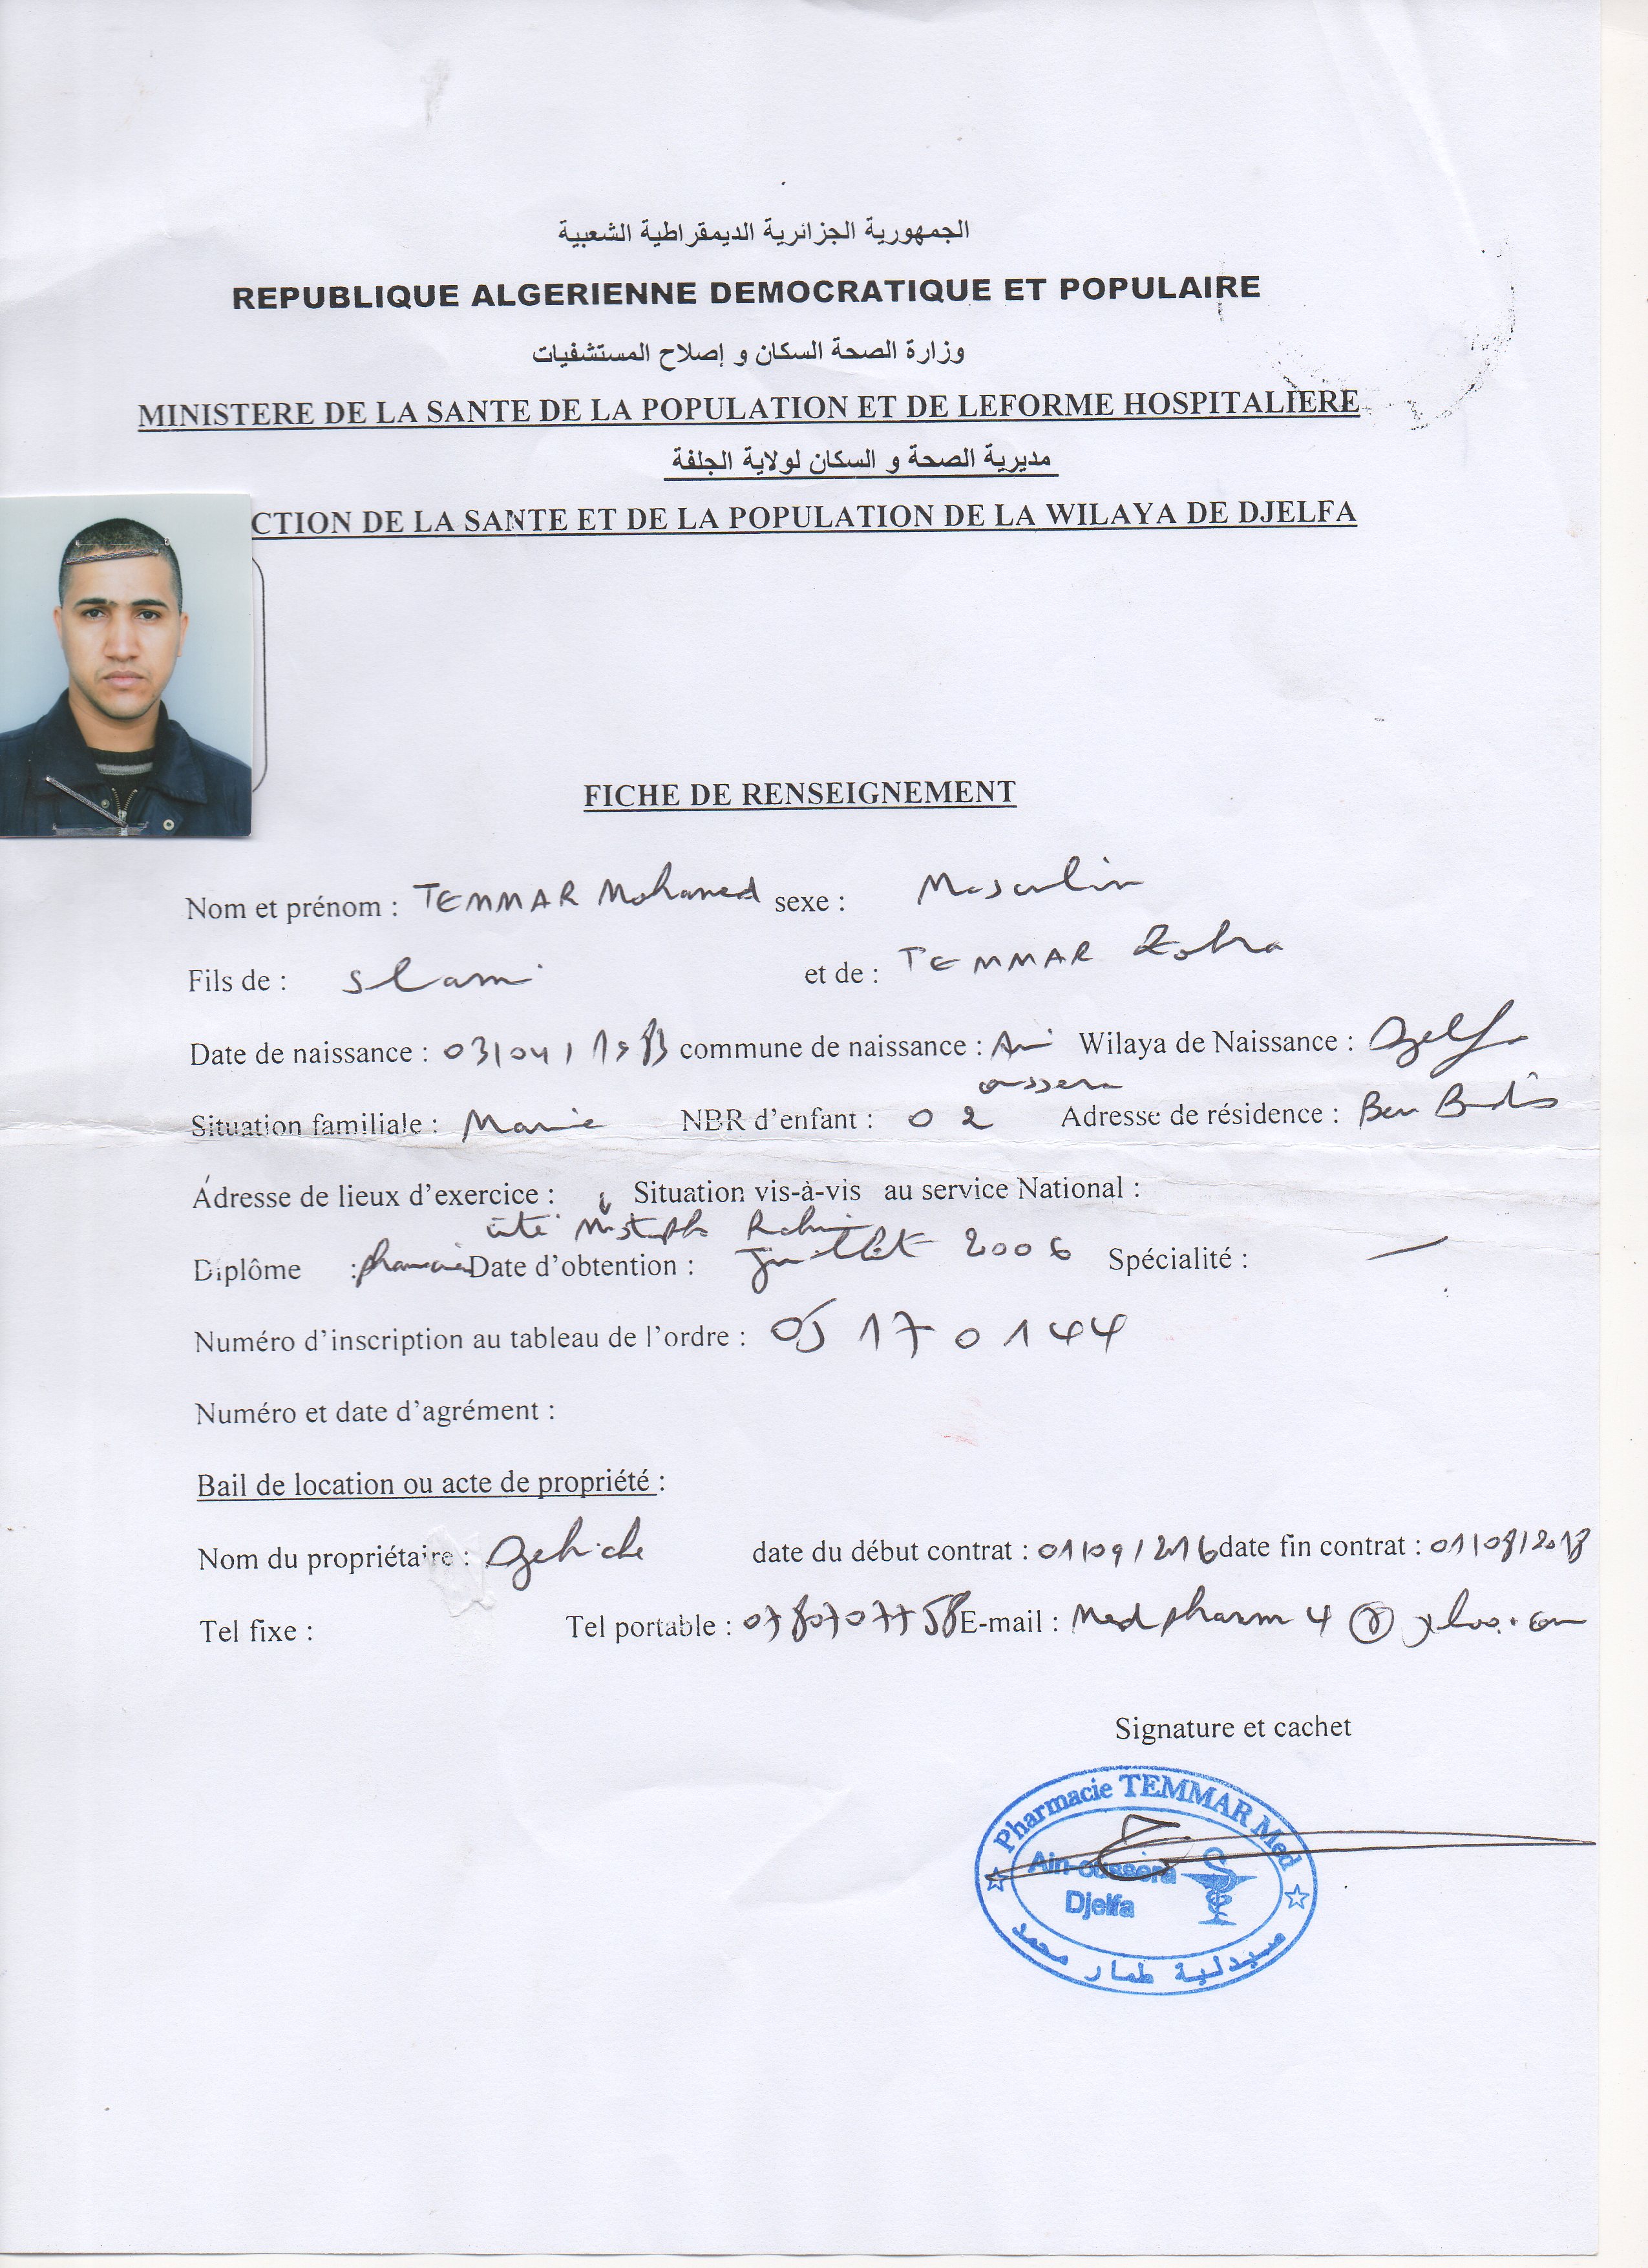 الجمهورية الجزائرية الديمقراطية الشعبية
REPUBLIQUE ALGERIENNE DEMOCRATIQUE ET POPULAIRE
وزارة الصحة السكان و إصلاح المستشفيات
MINISTERE DE LA SANTE DE LA POPULATION ET DE LEFORME HOSPITALIERE
مديرية الصحة و السكان لولاية الجلفة
CTION DE LA SANTE ET DE LA POPULATION DE LA WILAYA DE DJELFA
FICHE DE RENSEIGNEMENT
Nom et prénom : TEMMAR Mohamed sexe : Masculin
Fils de : Slami et de : TEMMAR Zohra
Date de naissance : 03/04/ commune de naissance : Ain oussera Wilaya de Naissance : Djelfa
Situation familiale : Marié NBR d'enfant : 02 Adresse de résidence : Ben
Adresse de lieux d'exercice : Situation vis-à-vis au service National :
cité Mustapha
Diplôme : pharmacie Date d'obtention : juillet 2006 Spécialité : —
Numéro d'inscription au tableau de l'ordre : 05 17 0144
Numéro et date d'agrément :
Bail de location ou acte de propriété :
Nom du propriétaire : date du début contrat : 01/09/2016 date fin contrat :
Tel fixe : Tel portable : E-mail : Medpharm4@yahoo.com
Signature et cachet
Pharmacie TEMMAR Med
Ain-oussera
Djelfa
صيدلية طمار محمد